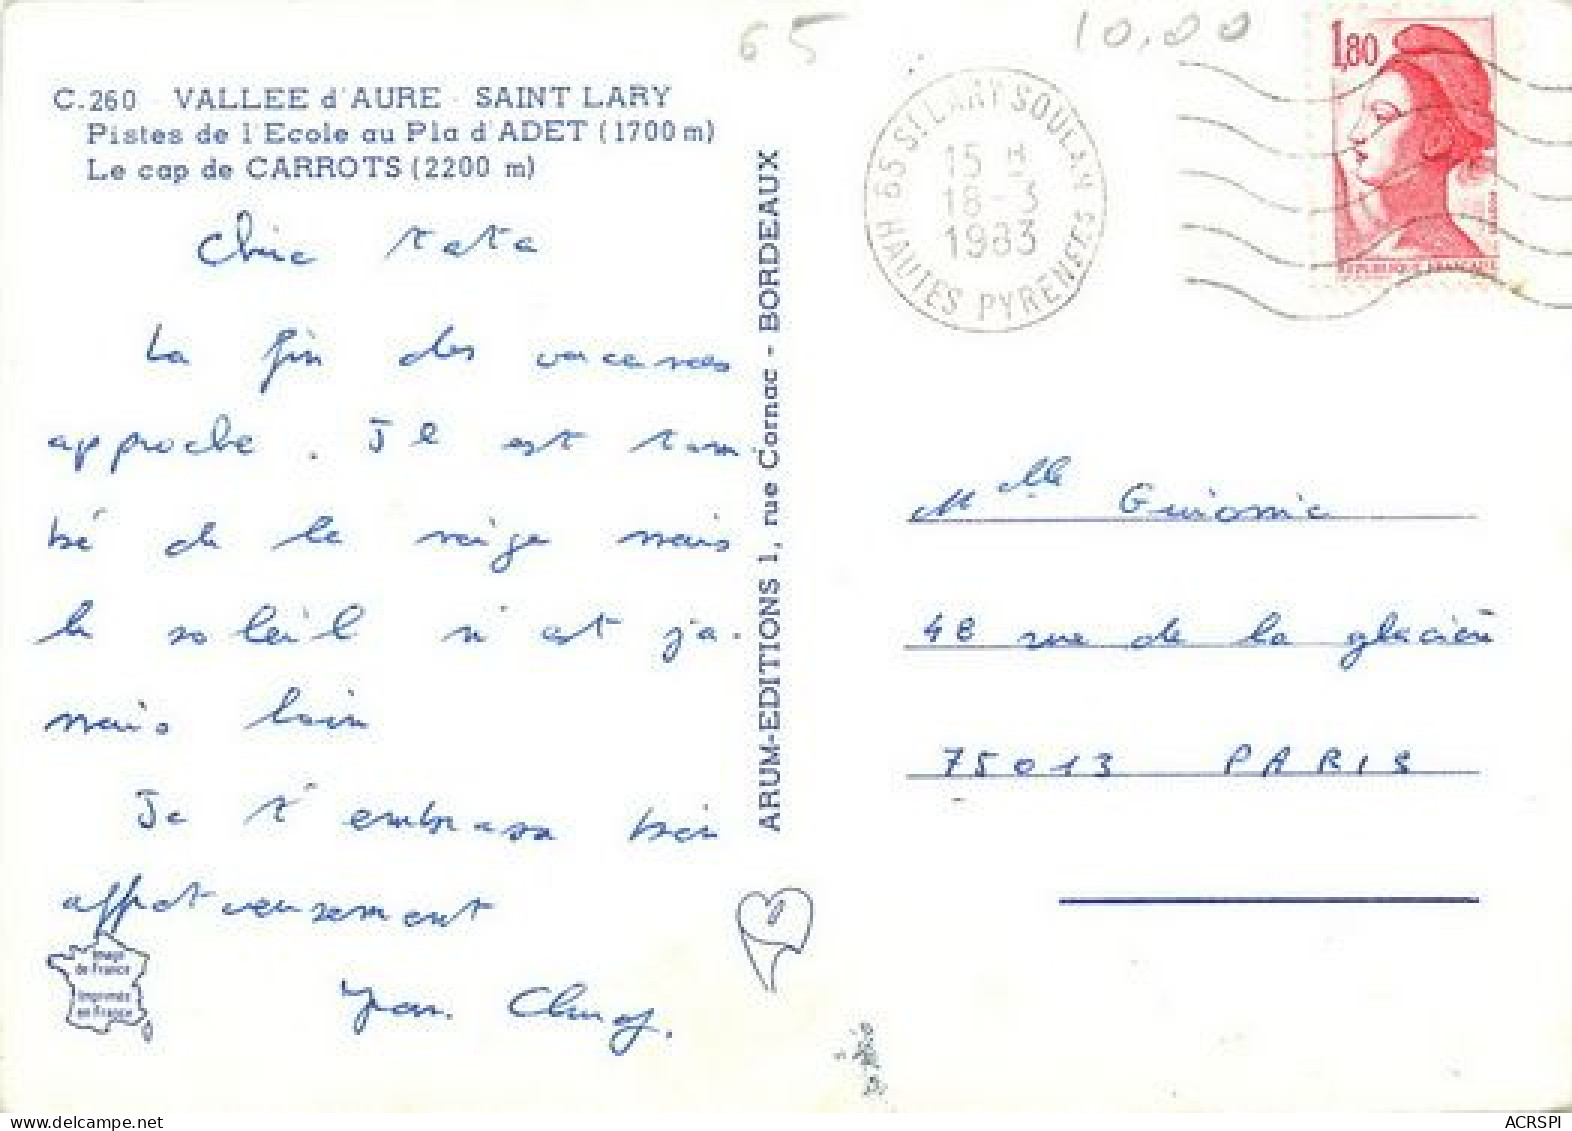 65
10,00
C.260 - VALLEE d'AURE - SAINT LARY
Pistes de l'Ecole au Pla d'ADET (1700 m)
Le cap de CARROTS (2200 m)
Chère tata
La fin des vacances
approche. Il est tom
bé de la neige mais
le soleil n'est ja-
mais loin
Je t'embrasse bien
affectueusement
Image
de France
Imprimés
en France
ARUM-EDITIONS 1, rue Cornac - BORDEAUX
65 ST LARY SOULAN
15 H
18-3
1983
HAUTES PYRENEES
1,80
REPUBLIQUE FRANÇAISE
Melle Guionic
48 rue de la glacière
75013 PARIS
ACRSPI